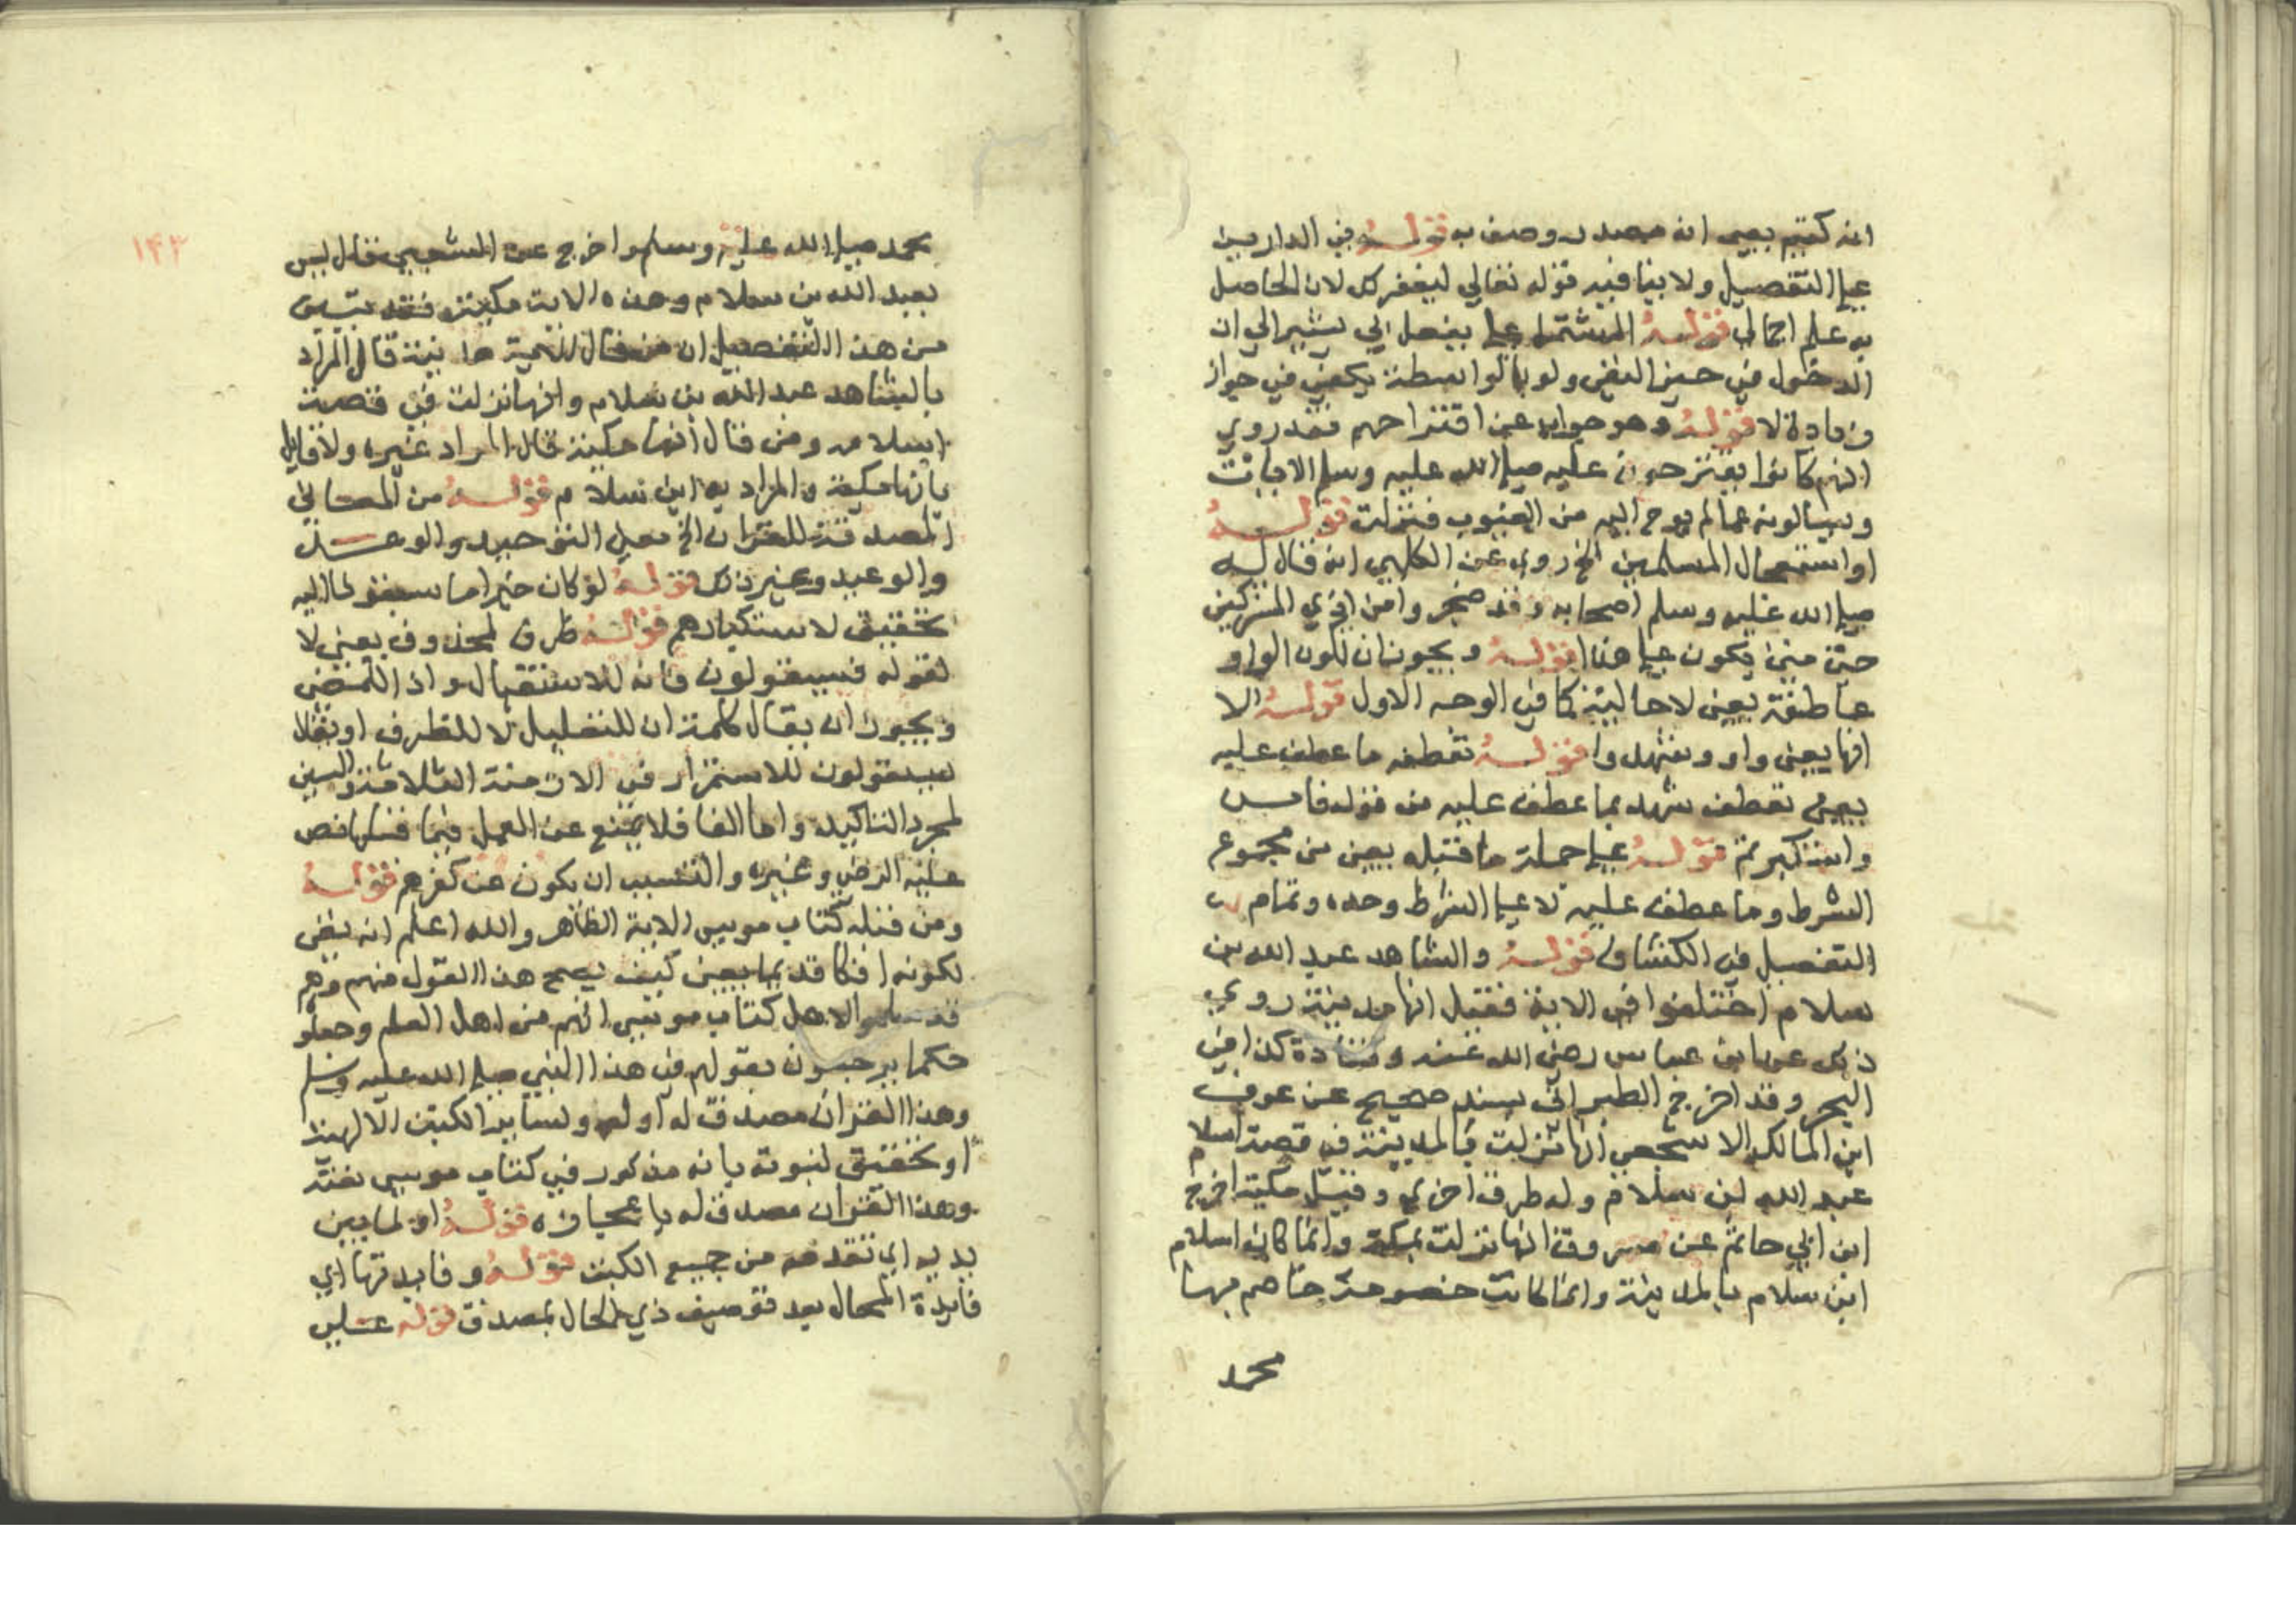 انه كقيم يعني انه مصدر وصف به قوله في الدارين
على التفصيل ولا ينافيه قوله تعالى ليغفر لك لان الحاصل
به علم اجمالي قوله المشتمل على بفعل اي يشير الى ان
الدخول في حيز النفي ولو بالواسطة يكفي في جواز
زيادة لا قوله وهو جواب عن اقتراحهم فقد روي
انهم كانوا يقترحون عليه صلى الله عليه وسلم الايات
ويسالونه عما لم يوح اليه من الغيوب فنزلت قوله
او استعجال المسلمين الخ روي عن الكلبي انه قال له
صلى الله عليه وسلم اصحابه وقد ضجروا من اذي المشركين
حتى متى يكون على هذا قوله ويجوز ان تكون الواو
عاطفة يعني لا حالية كما في الوجه الاول قوله الا
انها يعني واو وشهد وا قوله تعطفه ما عطف عليه
يعني تعطف شهد بما عطف عليه من قوله فامن
واستكبرتم قوله على جملة ما قبله يعني من مجموع
الشرط وما عطف عليه لا على الشرط وحده وتمام
التفصيل في الكشاف قوله والشاهد عبد الله بن
سلام اختلفوا في الاية فقيل انها مدينة روي
ذلك عن ابن عباس رضي الله عنه وقتادة كذا في
البحر وقد اخرج الطبراني بسند صحيح عن عوف
ابن المالك الاشجعي انها نزلت بالمدينة في قصة اسلام
عبد الله بن سلام وله طرق اخري وقيل مكية اخرج
ابن ابي حاتم عن مسروق انها نزلت بمكة وانما كان اسلام
ابن سلام بالمدينة وانما كانت خصومة خاصم بها
محمد
١٤٣
محمد صلى الله عليه وسلم واخرج عن الشعبي فقال ليس
بعبد الله بن سلام وهذه الاية مكية فقد تبين
من هذا التفصيل ان من قال الاية مدنية قال المراد
بالشاهد عبد الله بن سلام وانها نزلت في قصة
اسلامه ومن قال انها مكية قال المراد غيره ولا قايل
بانها مكية والمراد به ابن سلام قوله من المعاني
المصدقة للقران الخ معني التوحيد والوعد
والوعيد وغير ذلك قوله لو كان خيرا ما سبقونا اليه
تحقيق لاستكبارهم قوله ظرف لمحذوف يعني لا
لقوله فسيقولون فانه للاستقبال واذ للمضي
ويجوز ان يقال كلمة اذ للتعليل لا للظرف او يقال
سيقولون للاستمرار في الازمنة الثلاثة والسين
لمجرد التاكيد واما الفا فلا يمنع عن العمل فيما قبلها نص
عليه الرضي وغيره والتسبب ان يكون عن كفرهم قوله
ومن قبله كتاب موسى الاية الظاهر والله اعلم انه نفي
لكونه افكا قديما يعني كيف يصح هذا القول منهم وهم
قد سلموا لاهل كتاب موسى انهم من اهل العلم وجعلوهم
حكما يرجعون بقولهم في هذا النبي صلى الله عليه وسلم
وهذا القران مصدق له او له ولساير الكتب الالهية
او تحقيق لنبوته بانه مذكور في كتاب موسى نعته
وهذا القران مصدق له باعجازه قوله او لما بين
يديه اي تقدمه من جميع الكتب قوله وفايدتها اي
فايدة الحال بعد توصيف ذي الحال بمصدق قوله علي